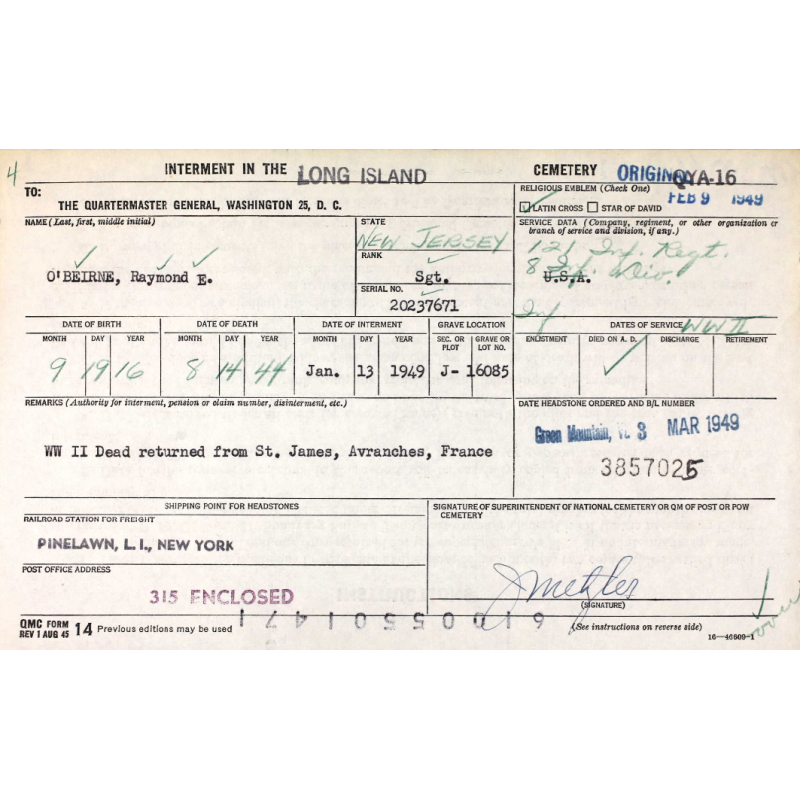 4
INTERMENT IN THE LONG ISLAND CEMETERY ORIGINAL QYA-16
FEB 9 1949
TO:
THE QUARTERMASTER GENERAL, WASHINGTON 25, D. C.
RELIGIOUS EMBLEM (Check One)
LATIN CROSS STAR OF DAVID
NAME (Last, first, middle initial)
O'BEIRNE, Raymond E.
STATE
NEW JERSEY
RANK
Sgt.
SERIAL NO.
20237671
SERVICE DATA (Company, regiment, or other organization or
branch of service and division, if any.)
121 Inf. Regt.
8 Inf. Div.
U.S.A.
Inf
DATE OF BIRTH DATE OF DEATH DATE OF INTERMENT GRAVE LOCATION DATES OF SERVICE WW II
MONTH DAY YEAR MONTH DAY YEAR MONTH DAY YEAR SEC. OR PLOT GRAVE OR LOT NO. ENLISTMENT DIED ON A. D. DISCHARGE RETIREMENT
9 19 16 8 14 44 Jan. 13 1949 J- 16085
REMARKS (Authority for interment, pension or claim number, disinterment, etc.)
WW II Dead returned from St. James, Avranches, France
DATE HEADSTONE ORDERED AND B/L NUMBER
Green Mountain, 3 MAR 1949
3857025
SHIPPING POINT FOR HEADSTONES
RAILROAD STATION FOR FREIGHT
PINELAWN, L. I., NEW YORK
POST OFFICE ADDRESS
315 ENCLOSED
SIGNATURE OF SUPERINTENDENT OF NATIONAL CEMETERY OR QM OF POST OR POW
CEMETERY
J Metzler
(SIGNATURE)
QMC FORM
REV 1 AUG 45 14 Previous editions may be used
(See instructions on reverse side)
16—46609-1
over